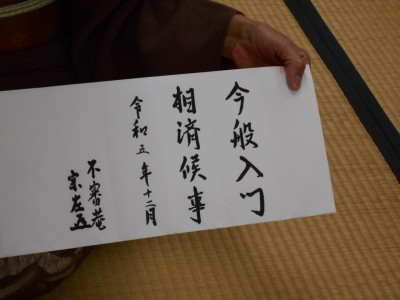 今般入門
相済候事
令和五年十二月
不審菴
宗左